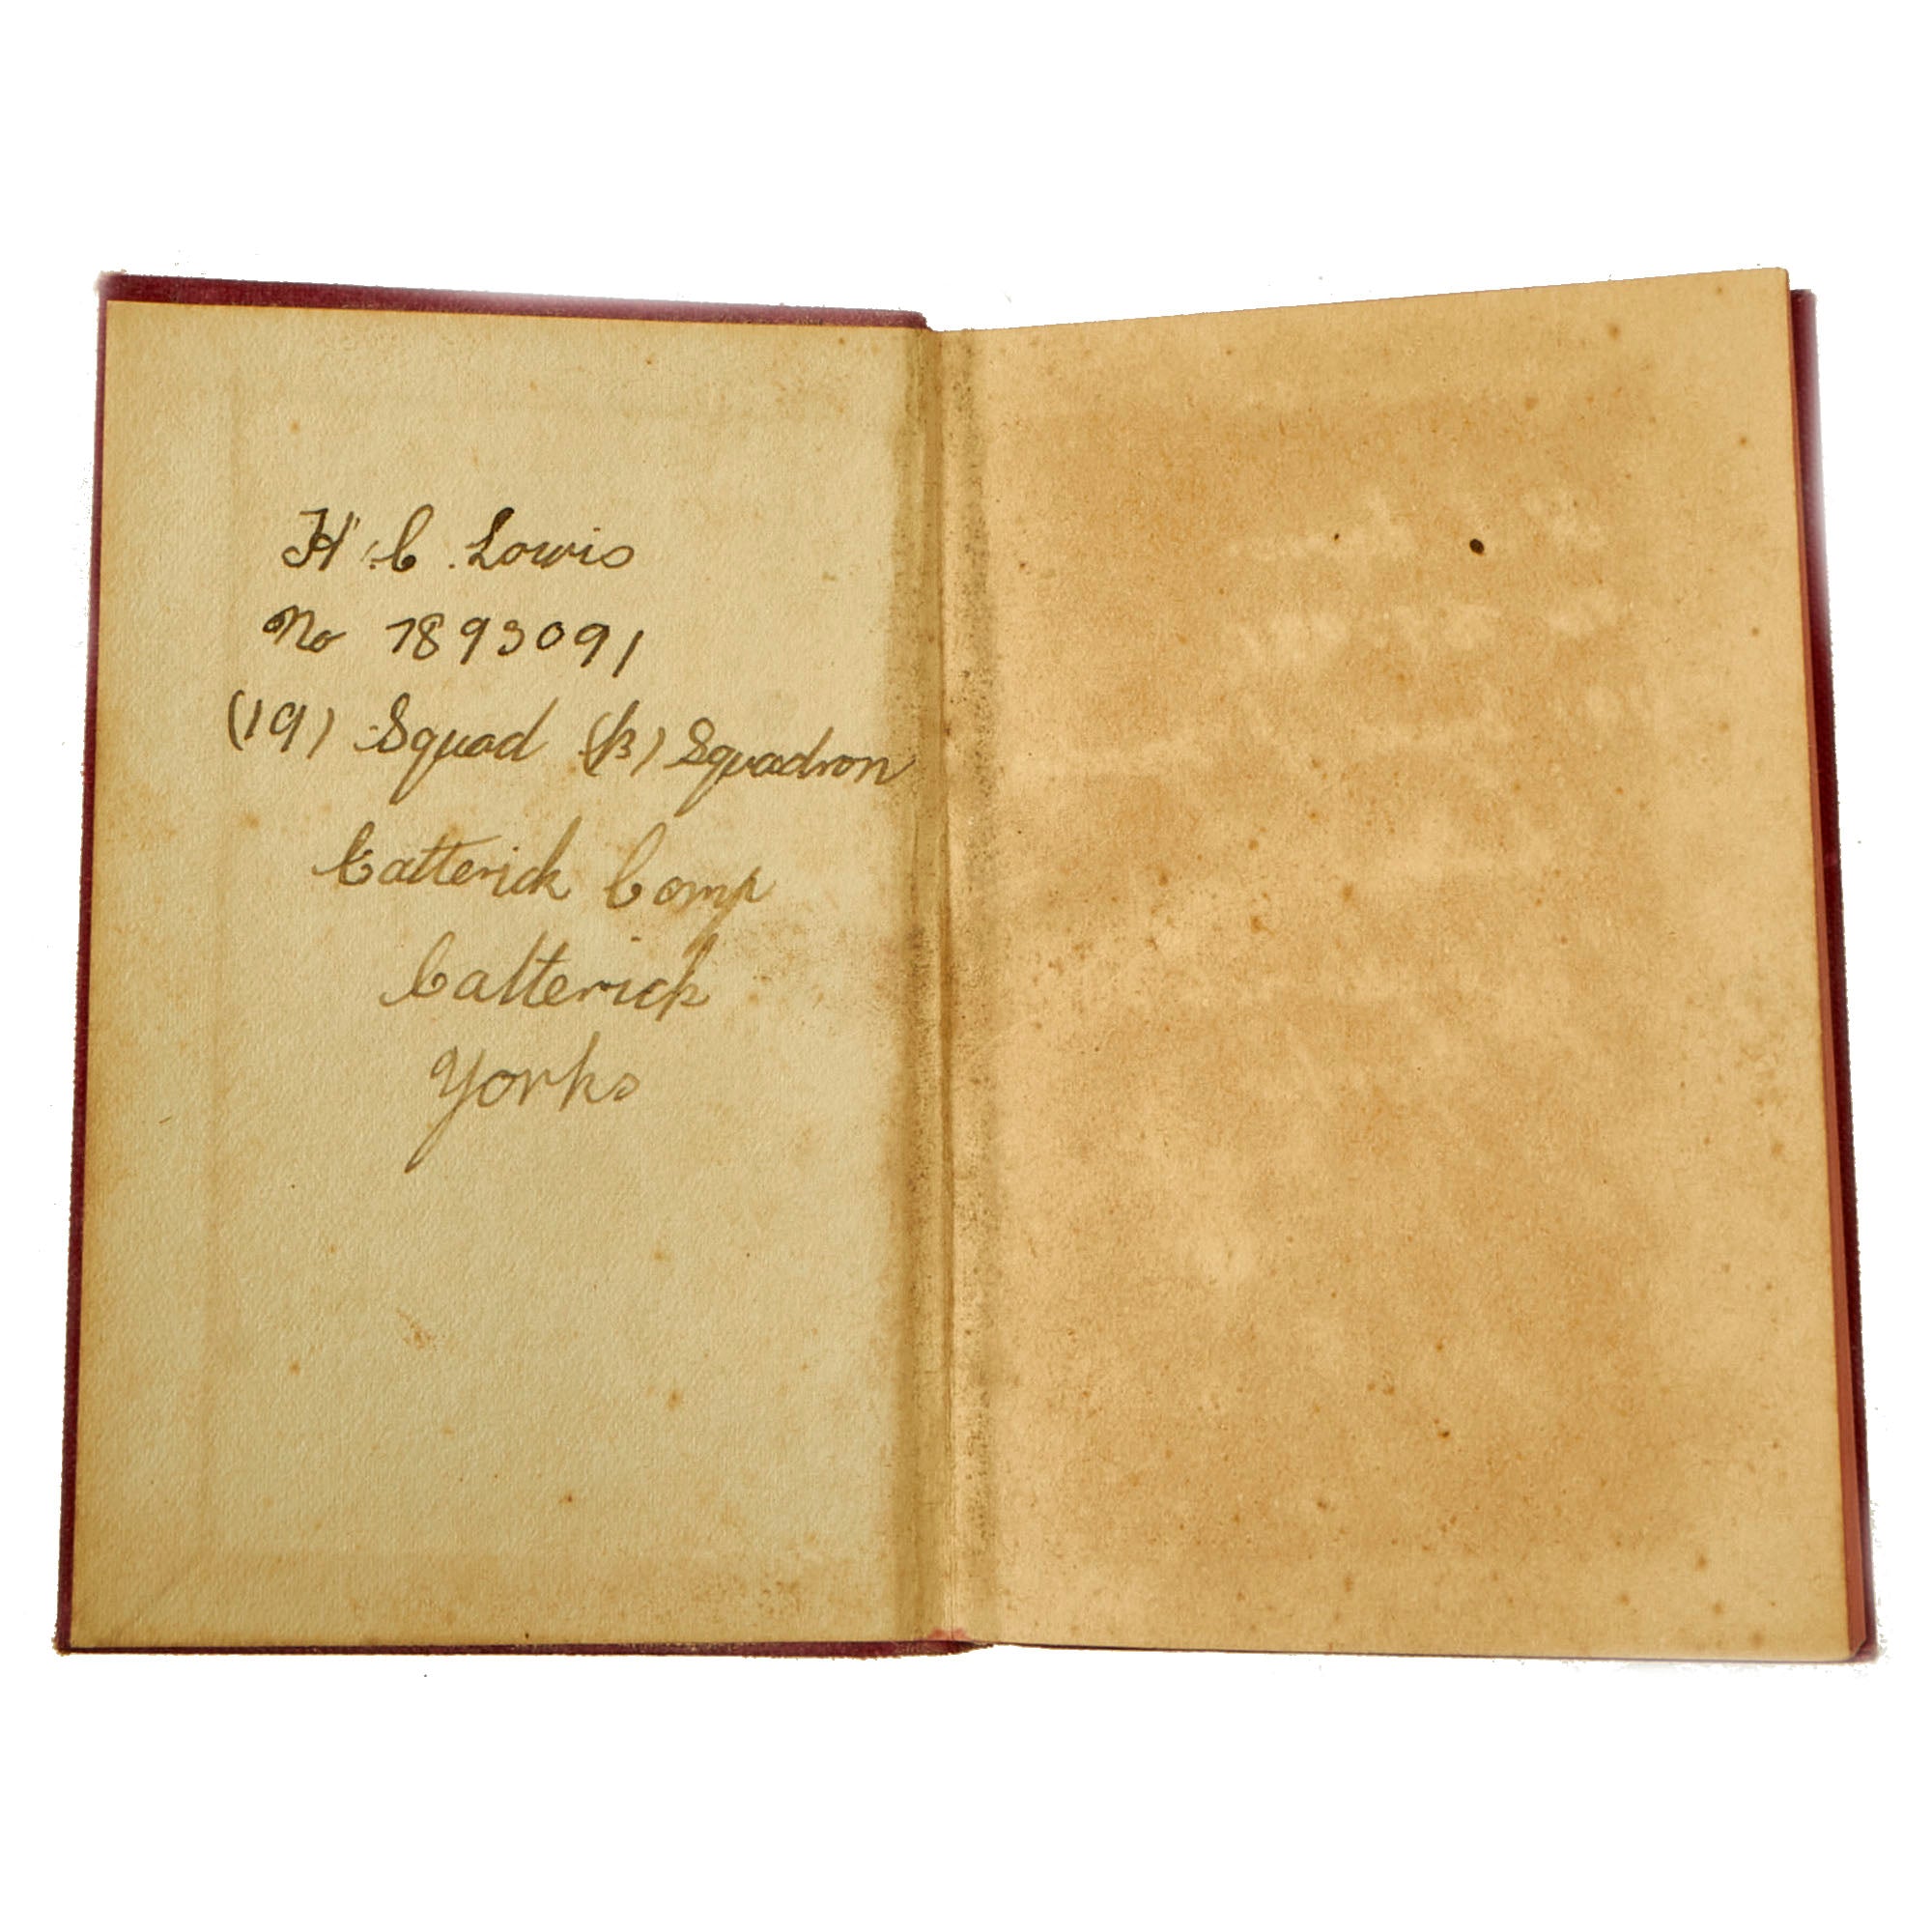 H. C. Lowis
No 7893091
(19) Squad (B) Squadron
Catterick Camp
Catterick
Yorks